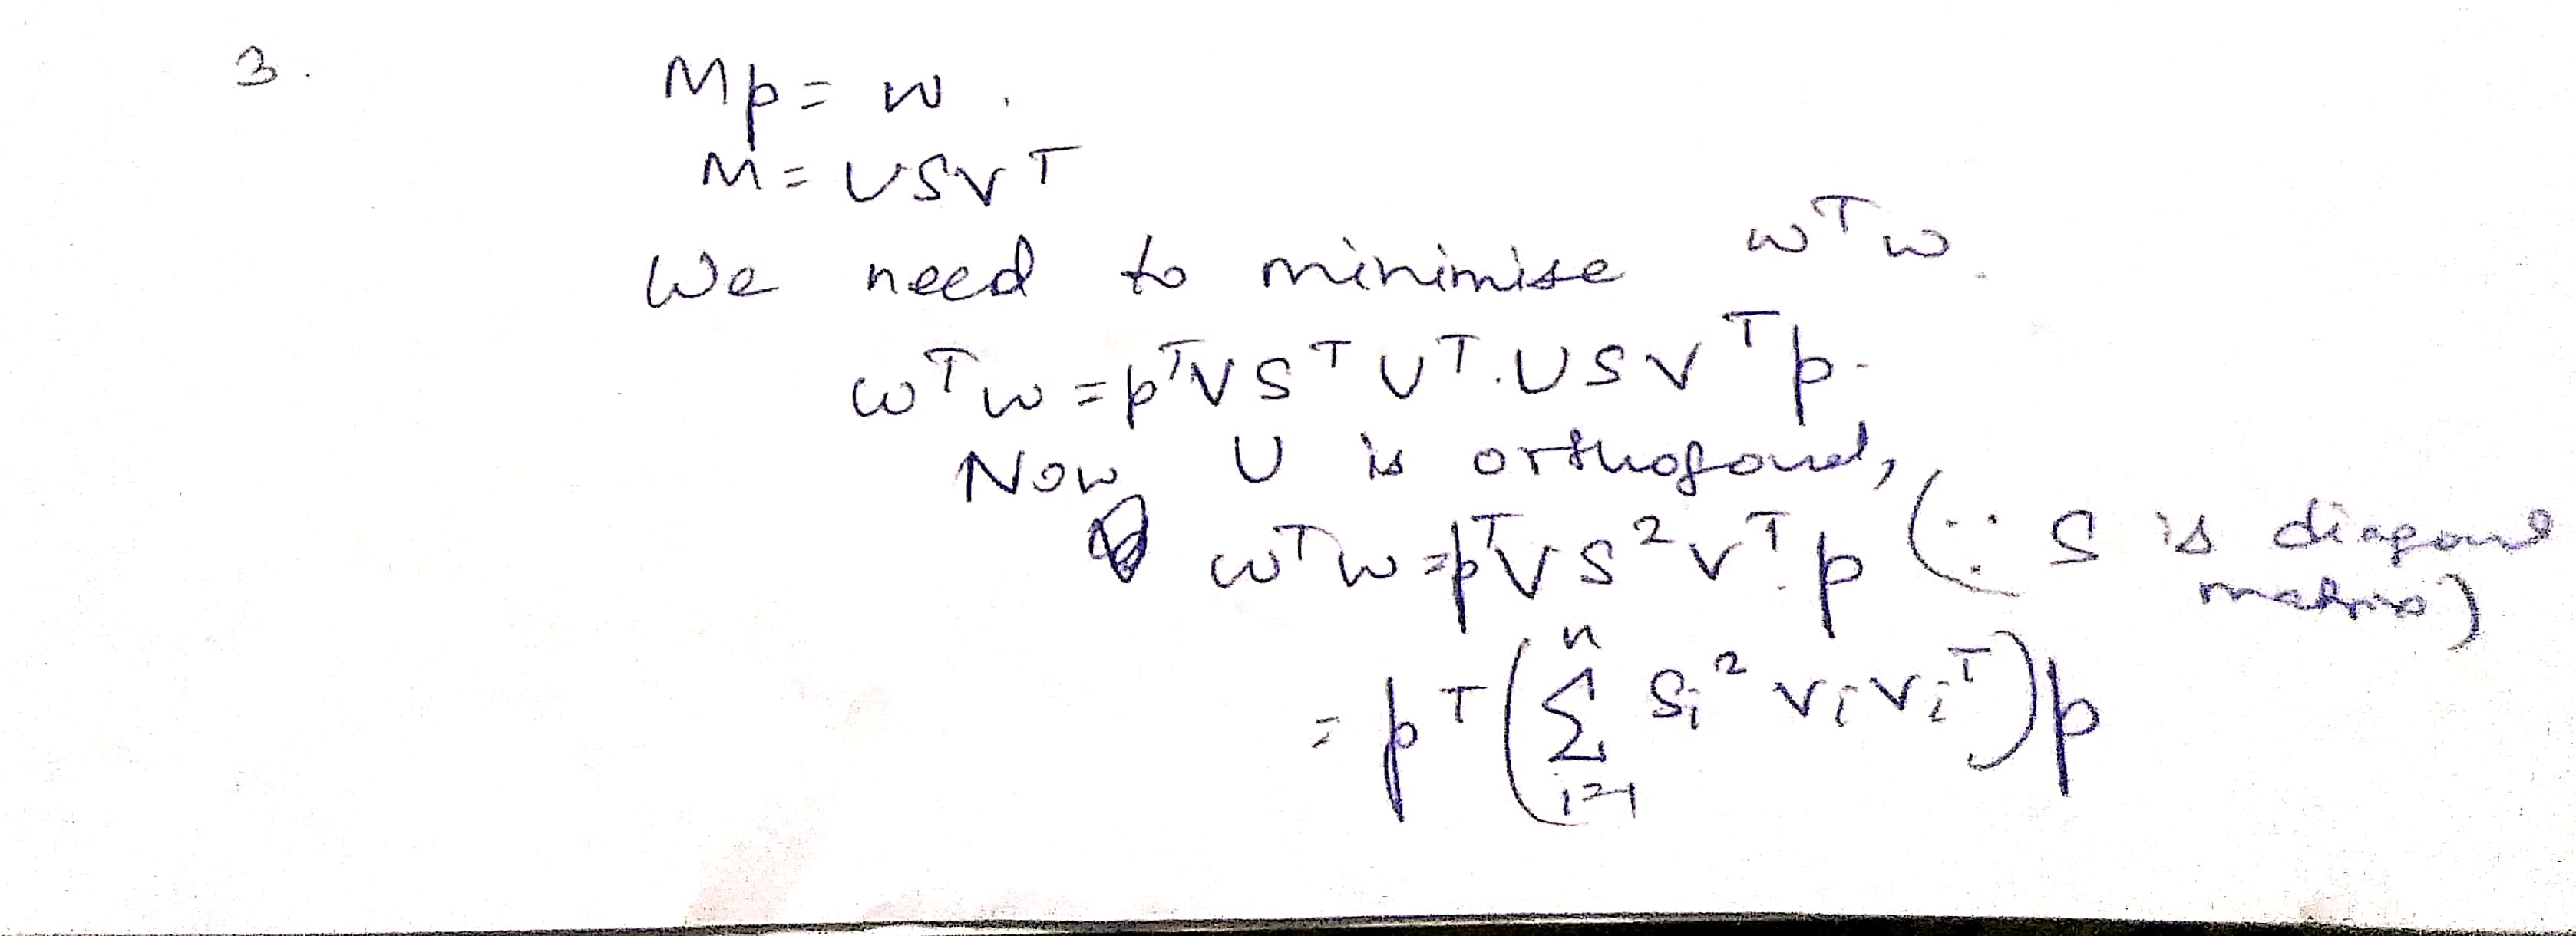 3.
Mp = w.
M = USVᵀ
We need to minimise wᵀw.
wᵀw = pᵀVSᵀUᵀ.USVᵀp.
Now U is orthogonal,
wᵀw = pᵀVS²Vᵀp (∵ S is diagonal matrix)
= pᵀ(∑ⁿᵢ₌₁ Sᵢ² vᵢvᵢᵀ)p